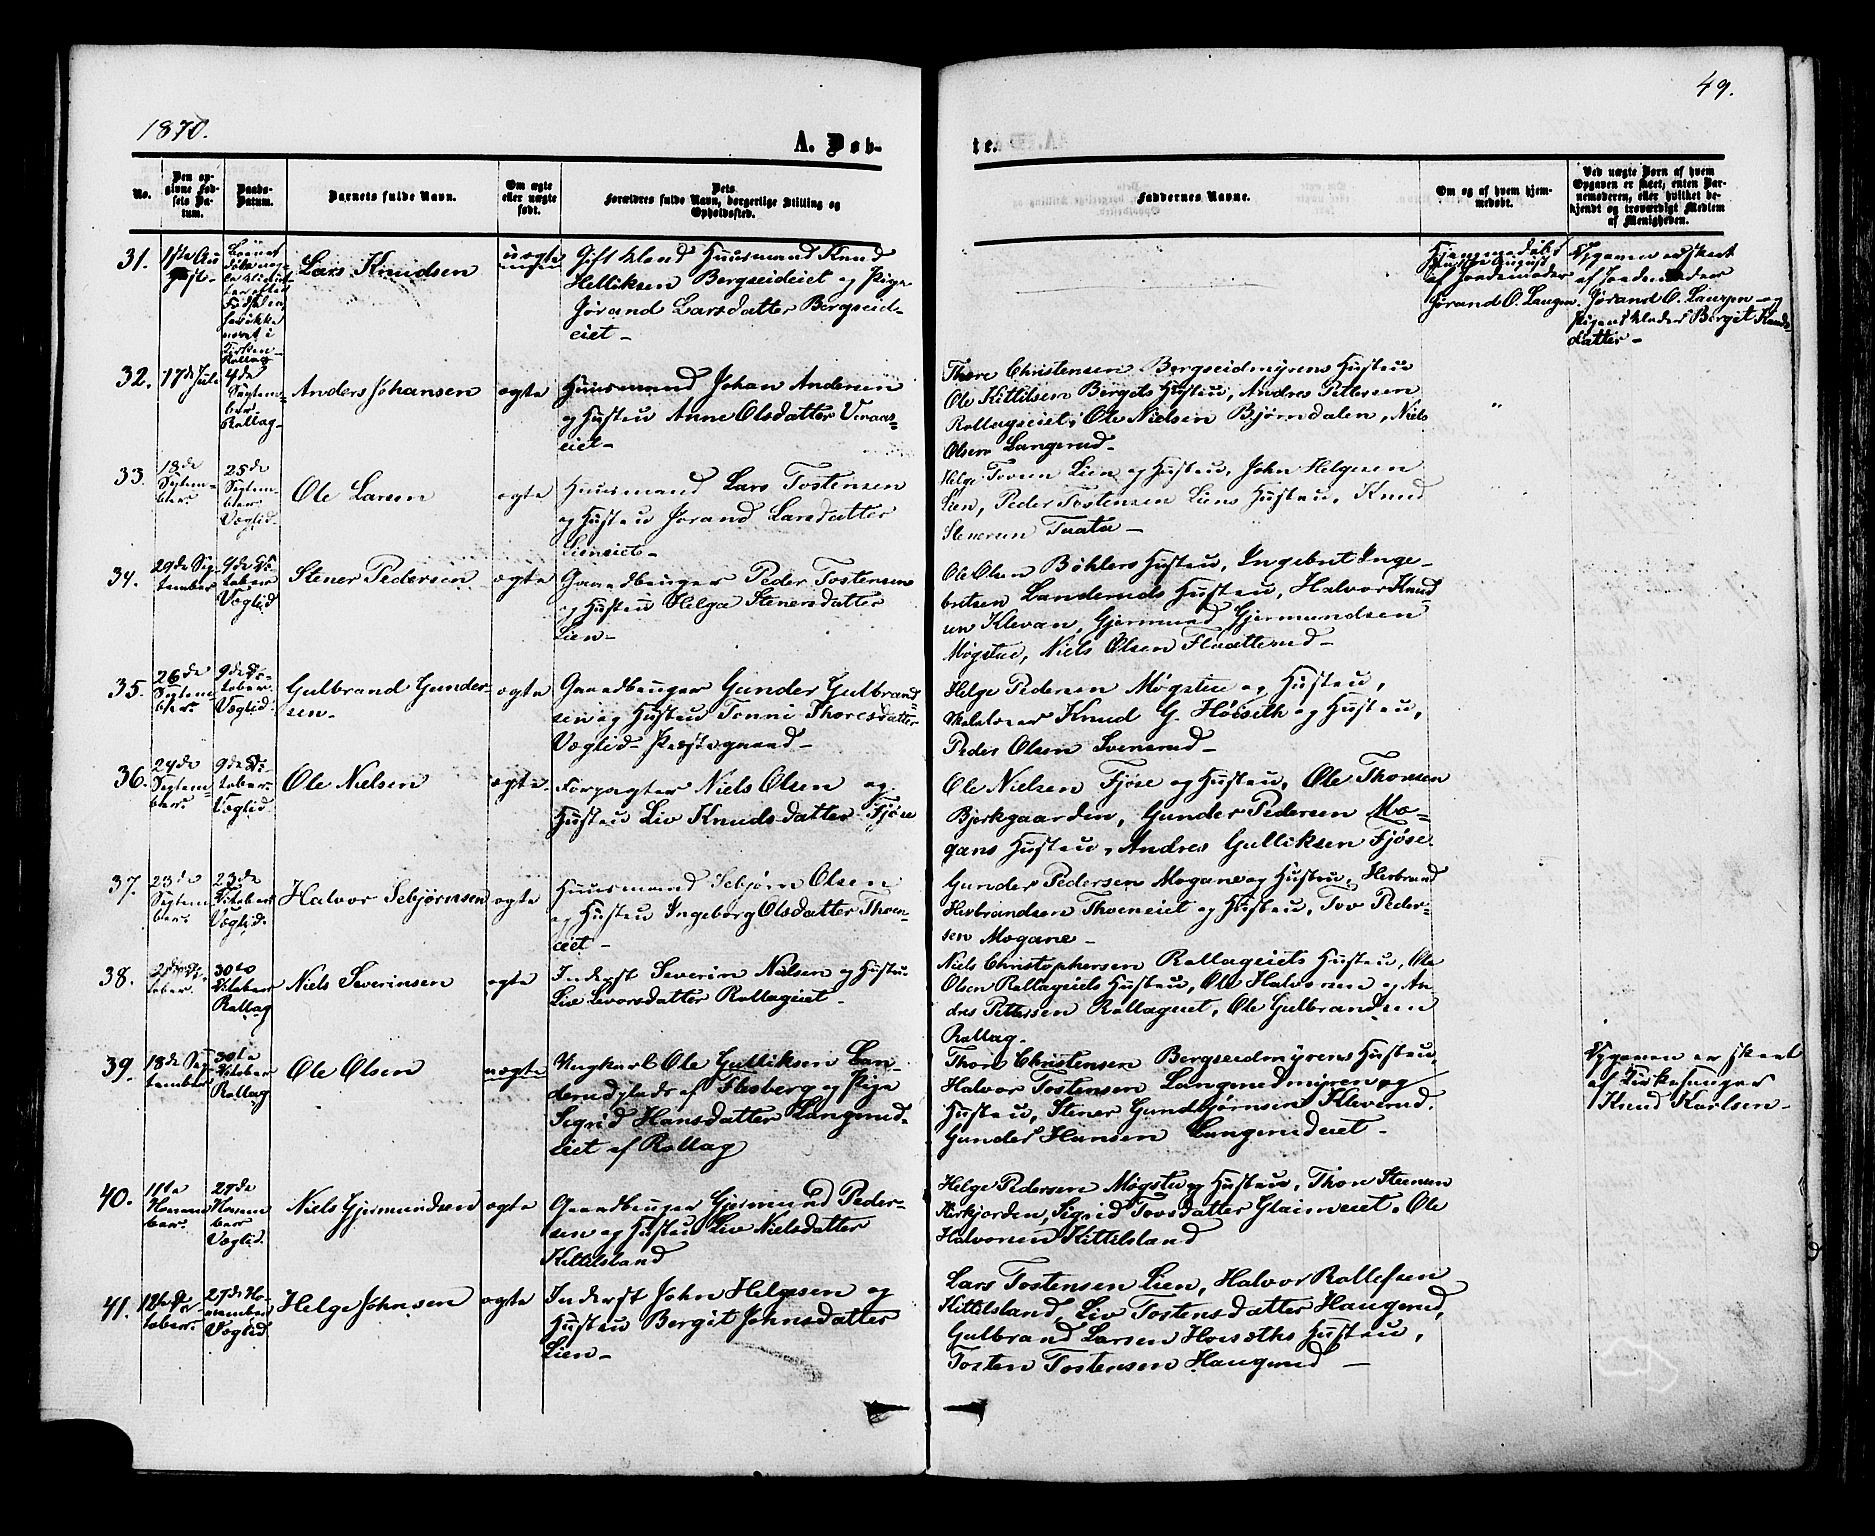 1870.
A. Døb-
te.
49.
No.
Den opgivne Fødsels Datum.
Daabs-Datum.
Barnets fulde Navn.
Om ægte eller uægte født.
Dets Forældres fulde Navn, borgerlige Stilling og Opholdssted.
Faddernes Navne.
Om og af hvem hjemmedøbt.
Ved uægte Børn af hvem Opgaven er skeet, enten Barnemoderen, eller hvilket bekjendt og troværdigt Medlem af Menigheden.
31.
1ste August
Lars Knudsen
uægte
Gift Mand Huusmand Knud
Helliksen Bergseideiet og Pige
Jørand Larsdatter Bergseid-
eiet -
Hjemmedøbt
August
af Jordemoder
Jørand O. Laugen.
Opgaven er skeet
af Jordemoder
Jørand O. Laugen - og
Bergit Knuds-
datter -
32.
17de Juli
4de
Septem-
ber
Rollag
Anders Johansen
ægte
Huusmand Johan Andersen
og Hustru Anne Olsdatter Vraas-
eiet -
Thore Christensen Bergseidmyrens Hustru
Ole Kittilsen Bergets Hustru, Andres Pettersen
Rollagseiet, Ole Nielsen Bjørndalen, Niels
Olsen Langerud -
33.
18de
Septem-
ber
25de
Septem-
ber
Væglid
Ole Larsen
ægte
Huusmand Lars Tostensen
og Hustru Jørand Larsdatter
Lieneiet -
Helge Toven Lien og Hustru, John Helgesen
Lien, Peder Tostensen Liens Hustru, Knud
Stenersen Traaten -
34.
29de Sep-
tember
9de Oc-
tober
Væglid
Stener Pedersen
ægte
Gaardbruger Peder Tostensen
og Hustru Helga Stenersdatter
Lien -
Ole Olsen Bøhlers Hustru, Ingebret Inge-
bretsen Landeruds Hustru, Halvor Knud
sen Klevan, Gjermund Gjermundsen
Mogstue, Niels Olsen Flaatterud -
35.
26de
Septem
ber
9de Oc-
tober
Væglid
Gulbrand Gunder-
sen -
ægte
Gaardbruger Gunder Gulbrand-
sen og Hustru Tonni Thoresdatter
Væglid Præstegaard -
Helge Pedersen Mogstue og Hustru,
Knud G. Høiseth og Hustru,
Peder Olsen Svenerud -
36.
24de
Septem-
ber
9de Oc-
tober
Væglid
Ole Nielsen
ægte
Forpagter Niels Olsen og
Hustru Liv Knudsdatter Fjøse
Ole Nielsen Fjøse og Hustru, Ole Thorsen
Bjerkgaarden, Gunder Pedersen Mo-
gans Hustru, Andres Gulliksen Fjøse.
37.
23de
Septem
ber
23de
Oktober
Væglid
Halvor Sebjørnsen
ægte
Huusmand Sebjørn Olsen
og Hustru Ingeborg Olsdatter Thoen-
eiet -
Gunder Pedersen Mogane og Hustru, Herbrand
Herbrandsen Thoeneiet og Hustru, Tov Peder-
sen Mogane -
38.
30te
Oktober
Rollag
Niels Severinsen
ægte
Inderst Severin Nielsen og Hustru
Live Livorsdatter Rollageiet -
Niels Christophersen Rollageiets Hustru, Ole
Olsen Rollageiets Hustru, Ole Halvorsen og An-
dres Pettersen Rollageiet, Ole Gulbrandsen
Rollag.
39.
18de Sep
tember
30te
Oktober
Rollag
Ole Olsen
uægte
Ungkarl Ole Gulliksen Lan-
derudplads af Flesberg og Pige
Sigrid Hansdatter Langerud-
eiet af Rollag
Thore Christensen Bergseidmyrens Hustru,
Halvor Tostensen Langerudmyren og
Hustru, Stener Gundbjørnsen Kleverud.
Gunder Hansen Langerudeiet -
Opgaven er skeet
af Kirkesanger
Knud Karlsen -
40.
11te
Novem
ber
27de
Novem
ber
Væglid
Niels Gjermundsen
ægte
Gaardbruger Gjermund Peder-
sen og Hustru Liv Nielsdatter
Kittelsland
Helge Pedersen Mogstu og Hustru, Thore Stenersen
Kirkjorden, Sigrid Tovsdatter Glaimeiet, Ole
Halvorsen Kittilsland
41.
18de Oc-
tober
27de No-
vember
Væglid
Helge Johnsen
ægte
Inderst John Helgesen og
Hustru Bergit Johnsdatter
Lien -
Lars Tostensen Lien, Halvor Rollefsen
Kittelsland, Liv Tostensdatter Haugerud,
Gulbrand Larsen Hoiseths Hustru,
Tosten Tostensen Haugerud -